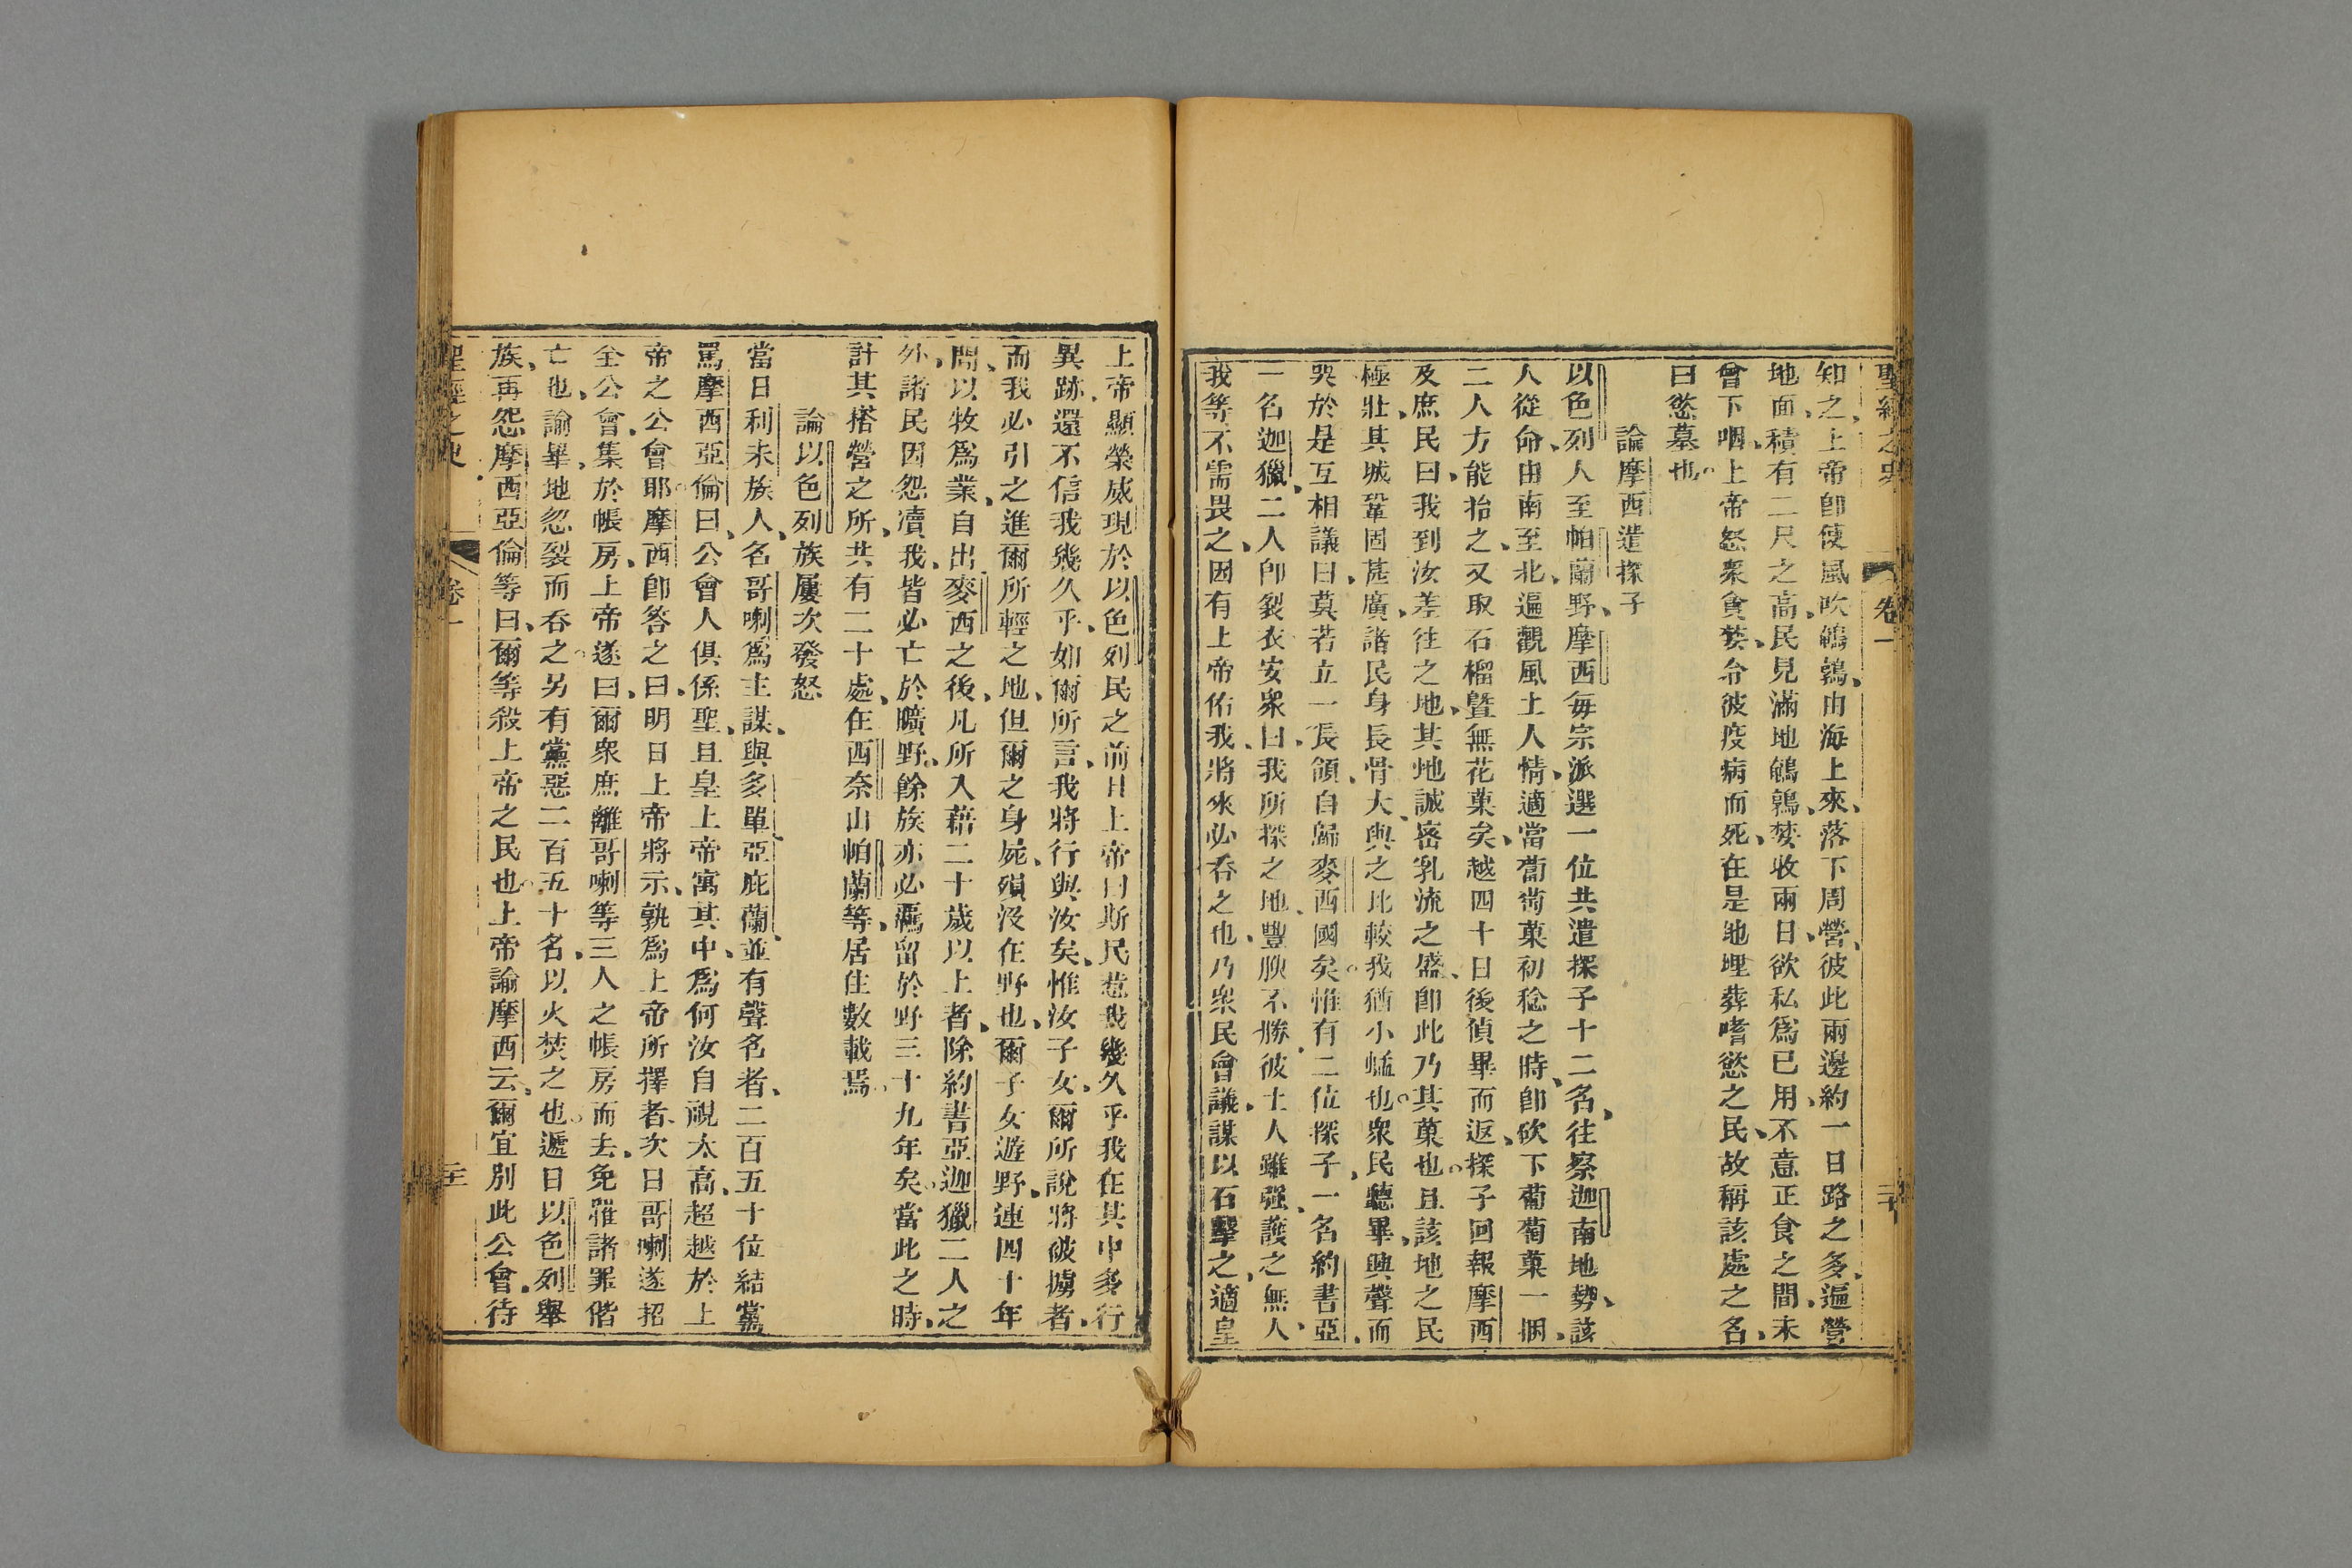 聖經之史 卷一 二十
知之、上帝卽使風吹鵪鶉、由海上來、落下周營、彼此兩邊約一日路之多、逼營
地面、積有二尺之高、民見滿地鵪鶉、焚收兩日、欲私爲已用、不意正食之間、未
曾下咽、上帝怒衆貪婪、令彼疫病而死、在是地埋葬嗜慾之民、故稱該處之名、
曰慾墓也。
論摩西遣探子
以色列人至帕蘭野、摩西每宗派選一位共遣探子十二名、往察迦南地勢、該
人從命、由南至北、遍觀風土人情、適當葡萄菓初稔之時、卽砍下葡萄菓一捆、
二人方能抬之、又取石榴曁無花菓矣、越四十日後偵畢而返、探子回報摩西
及庶民曰、我到汝差往之地、其地誠密乳流之盛、卽此乃其菓也。且該地之民
極壯、其城鞏固甚廣、諸民身長骨大、與之比較我猶小蜢也。衆民聽畢、興聲而
哭於是互相議曰、莫若立一長領、自歸麥西國矣。惟有二位探子、一名約書亞、
一名迦獵、二人卽裂衣安衆曰、我所探之地、豐腴不勝、彼土人雖强、護之無人、
我等不需畏之、因有上帝佑我、將來必吞之也、乃衆民會議、謀以石擊之、適皇
上帝顯榮威現於以色列民之前曰上帝曰斯民惹我幾久乎我在其中多行
異跡、還不信我幾久乎、如爾所言、我將行與汝矣、惟汝子女、爾所說將被擄者、
而我必引之進爾所輕之地、但爾之身屍、殞沒在野也、爾子女遊野、連四十年
間、以牧爲業、自出麥西之後、凡所入藉二十歲以上者、除約書亞迦獵二人之
外、諸民因怨凟我、皆必亡於曠野、餘族亦必羈留於野三十九年矣。當此之時、
計其搭營之所、共有二十處、在西奈山帕蘭等、居住數載焉。
論以色列族屢次發怒
當日利未族人、名哥喇爲主謀、與多單、亞庇蘭、並有聲名者、二百五十位結黨
罵摩西亞倫曰、公會人俱係聖、且皇上帝寓其中、爲何汝自覗太高、超越於上
帝之公會耶。摩西卽答之曰、明日上帝將示、孰爲上帝所擇者、次日哥喇遂招
全公會、集於帳房、上帝遂曰、爾衆庶離哥喇等三人之帳房而去、免罹諸罪偕
亡也、諭畢、地忽裂而吞之。另有黨惡二百五十名、以火焚之也。遞日以色列舉
族、再怨摩西亞倫等曰、爾等殺上帝之民也。上帝諭摩西云、爾宜別此公會、待
聖經之史 卷一